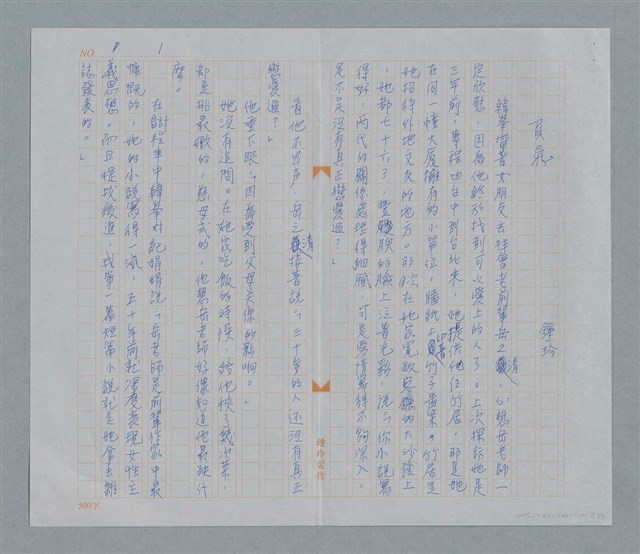 夏 氣
鍾玲
韓犖搭著女朋友去拜會老前輩岳之清，心想岳老師一
定欣慰，因為他終於找到可以愛上的人了。上次探訪她是
三年前，韓犖由台中到台北來，她提供他住竹居，那是她
在同一幢大廈擁有的小單位，牆紙上印著竹子圖案。竹居是
她招待外地文友的地方。那次在她家寬敞客廳的大沙發上
，她都七十六了，豐腴的臉上泛著光彩，說：「你小說寫
得好，兩代的關係處理得細膩，可是愛情寫得不夠深入，
是不是沒有真正戀愛過？」
看他不出声，岳之清接著說：「三十歲的人還沒有真正
戀愛過？」
他垂下眼：「因為受到父母关係的影响。」
她沒有追問。在她家吃飯的時候，給他挾了幾次菜，
都是挑最嫩的，慈母式的，他想岳老師好像知道他最缺什
麼。
在計程車中韓犖对紀娟娟說：「岳老師是前輩作家中最
慷慨的，她的小說寫得一流，五十年前就深度表現女性主
義思想。而且提拔後進，我第一篇短篇小說就是她拿去雜
誌發表的。」
NO. 1
鍾玲習作
500字